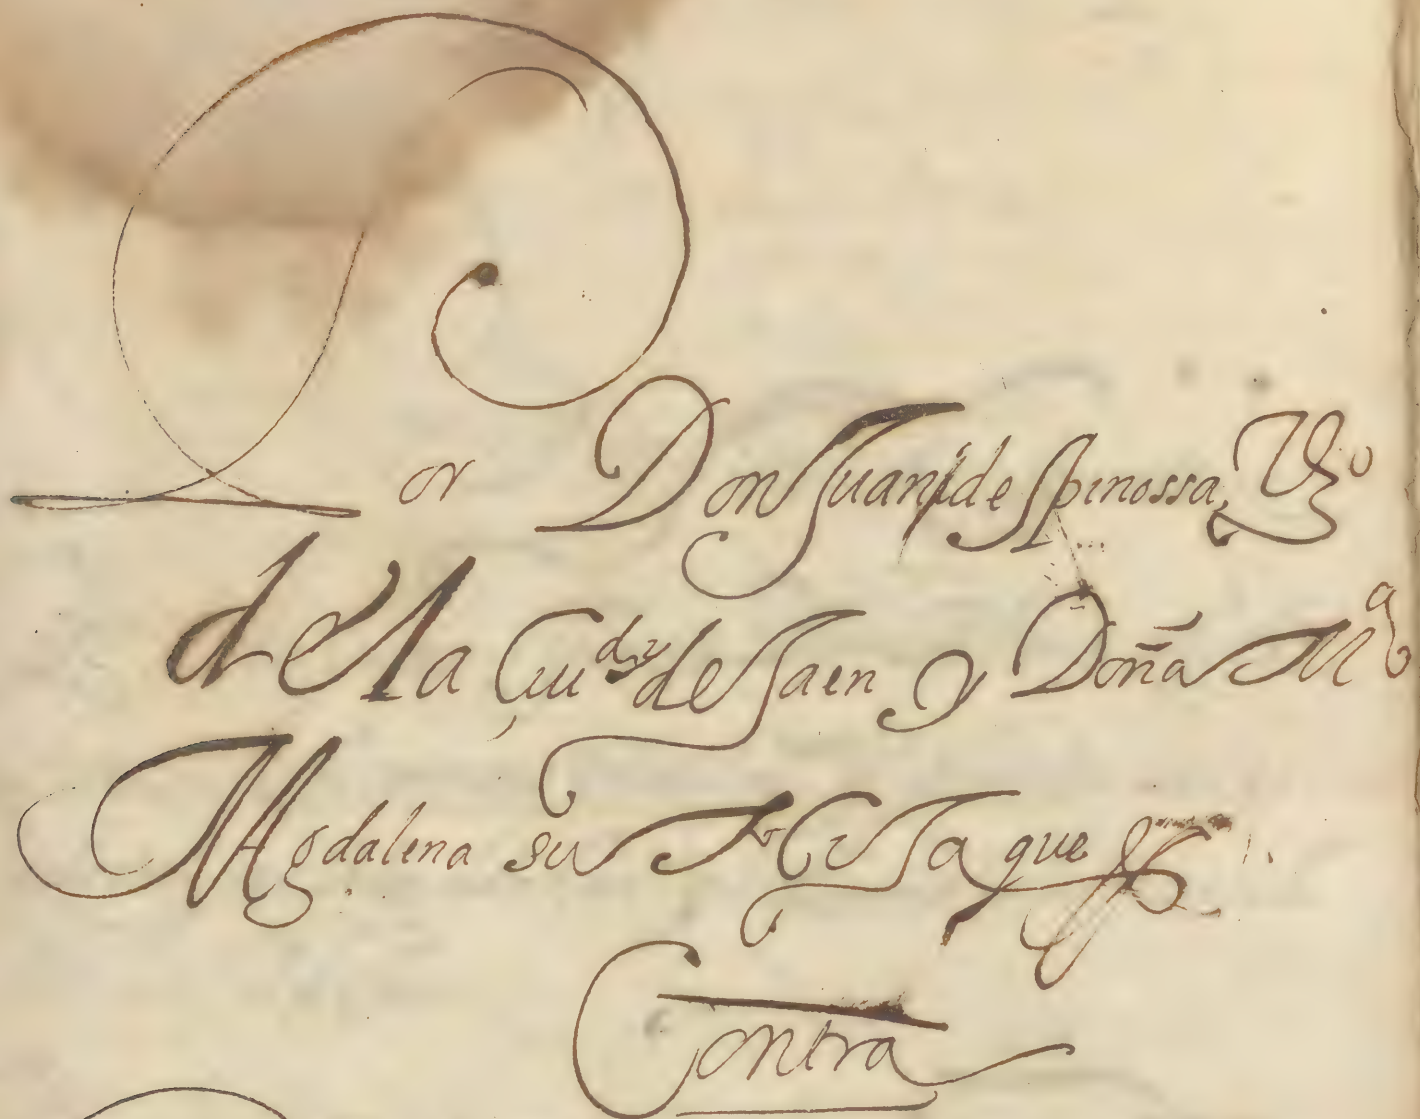 Por Don Juan de Spinossa Vº
de la Ciud de Jaen y Doña Mª
Magdalena su que
Contra